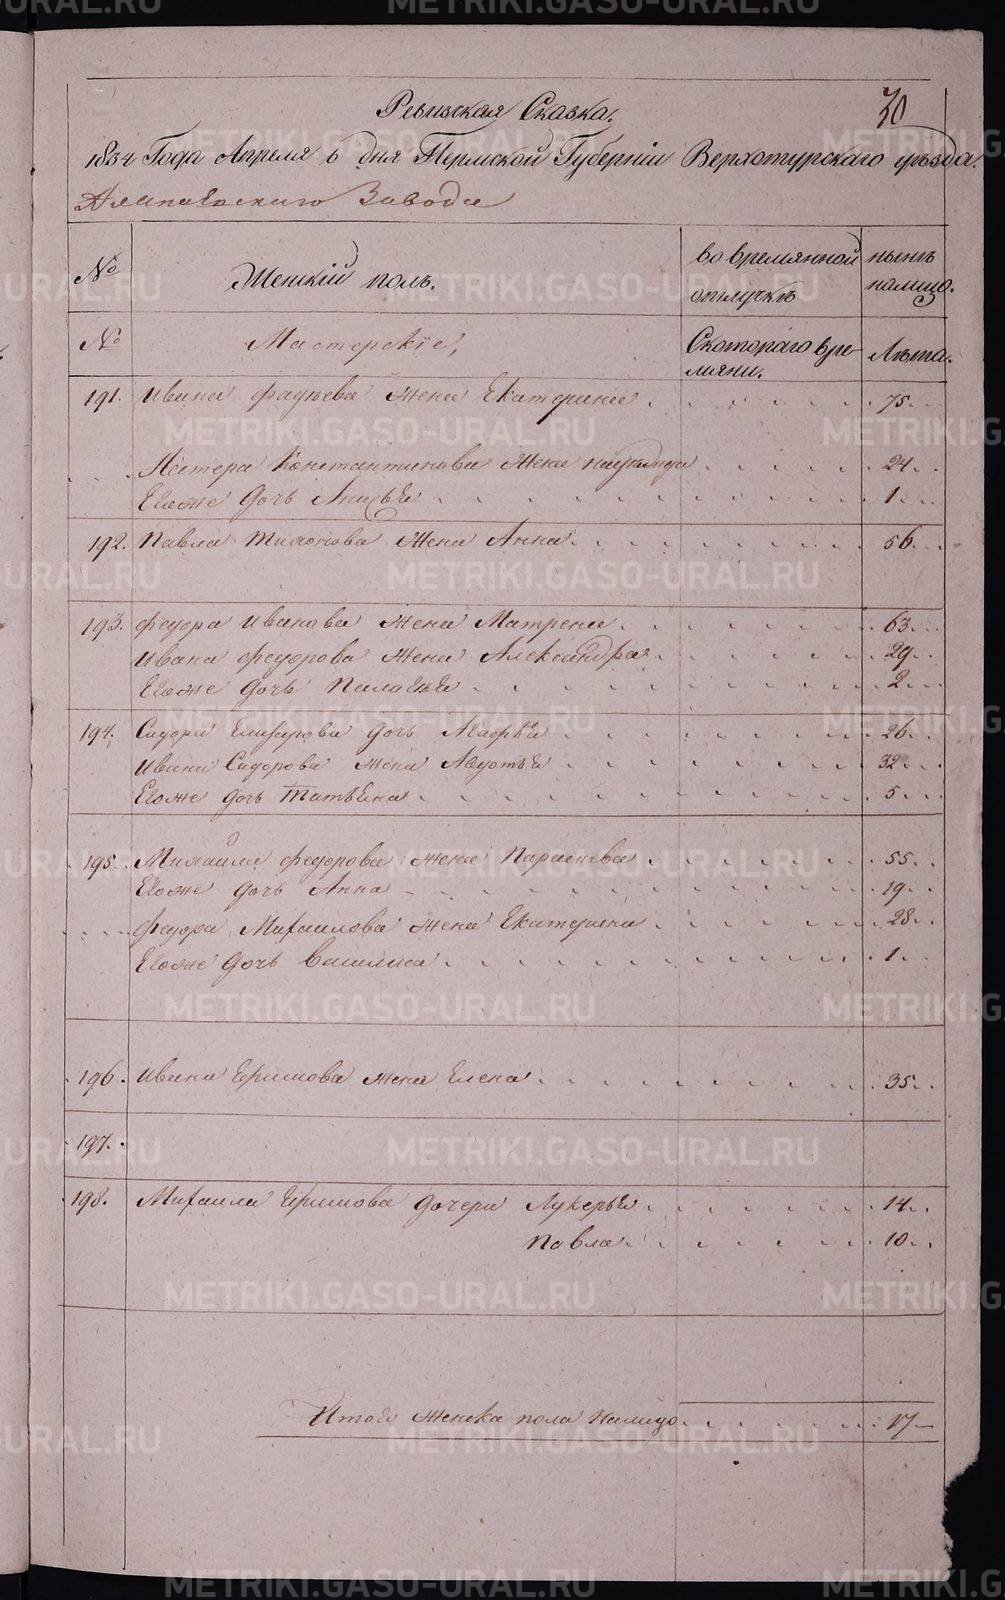 30
Ревизская Сказка,
1834 Года Апреля 6 дня Пермской Губерніи Верхотурскаго уѣзда.
Алапаевскаго Завода
№ Женскій полъ. во времянной отлучкѣ нынѣ налицо.
№ Мастерскіе, Скотораго времяни. Лѣта.
191. Ивана Фадѣева Жена Екатерина 75
Нестера Константинова Жена 24
Егоже Дочь 1
192. Павла Жена Анна 56
193. Федора Иванова Жена Матрена 63
Ивана Федорова Жена Александра 29
Егоже Дочь Палагея 2
194. Сидора Дочь Агафья 26
Ивана Сидорова Жена Авдотья 32
Егоже Дочь Татьяна 5
195. Михаила Федорова Жена 55
Егоже Дочь Анна 19
Федора Михаилова Жена Екатерина 28
Егоже Дочь Василиса 1
196. Ивана Ефимова Жена Елена 35
197.
198. Михаила Ефимова Дочери Лукерья 14
Павла 10
Итого Женска пола Налицо 17
METRIKI.GASO-URAL.RU